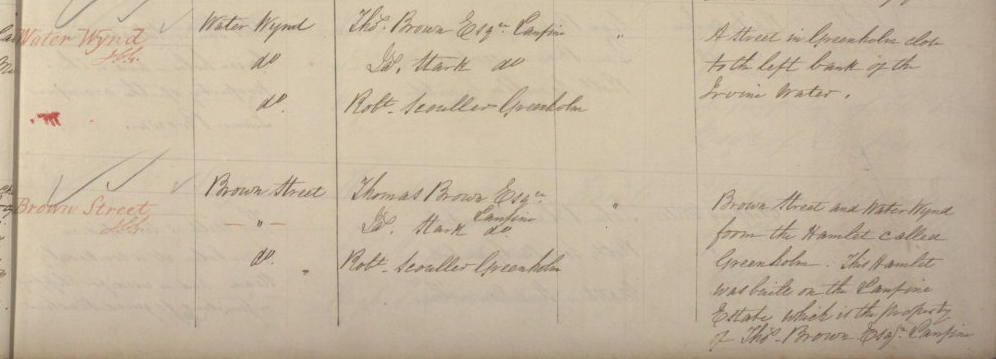 Water Wynd Water Wynd Thos. Brown Esqr. Lanfine " A Street in Greenholm close
do Jas. Stark do to the left bank of the
do. Robt. Scouller Greenholm Irvine Water.
Brown Street Brown Street Thomas Brown Esqr. " Brown Street and Water Wynd
Lanfine
" Jas. Stark do. form the Hamlet called
do. " Robt. Scouller Greenholm Greenholm. This Hamlet
was built on the Lanfine
Estate which is the property
of Thos. Brown Esqr. Lanfine